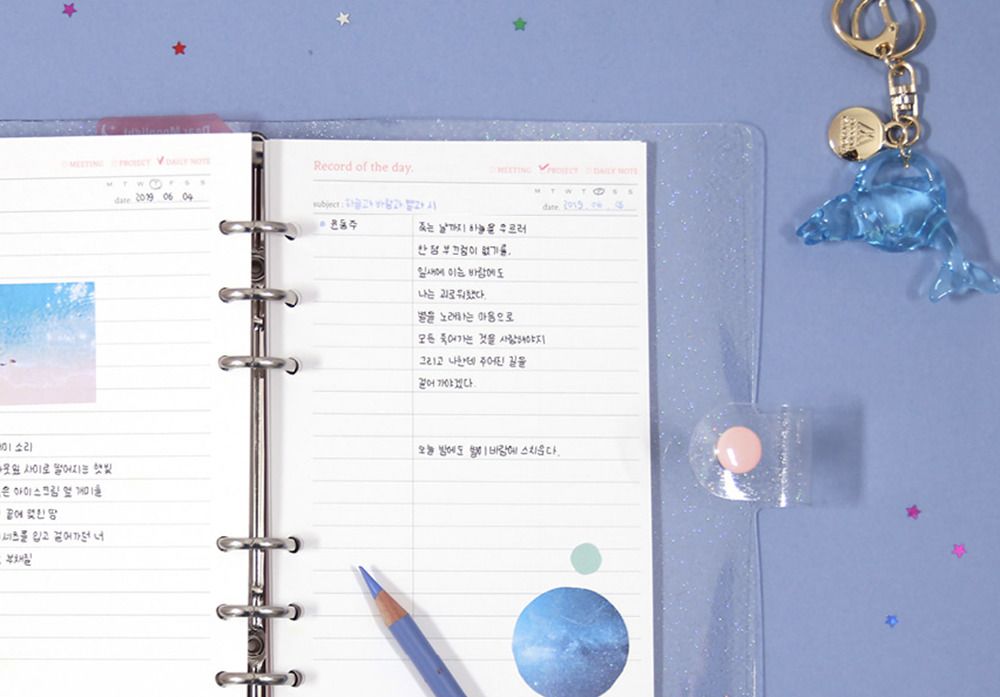 Dear Moonlight
MEETING PROJECT DAILY NOTE
M T W T F S S
date. 2019 06 04
소리
사이로 떨어지는 햇빛
아이스크림 옆 개미들
끝에 맺힌 땀
셔츠를 입고 걸어가던 너
부채질
Record of the day.
MEETING PROJECT DAILY NOTE
M T W T F S S
subject : 하늘과 바람과 별과 시
date. 2019 06
윤동주
죽는 날까지 하늘을 우르러
한 점 부끄럼이 없기를.
잎새에 이는 바람에도
나는 괴로워했다.
별을 노래하는 마음으로
모든 죽어가는 것을 사랑해야지
그리고 나한테 주어진 길을
걸어가야겠다.
오늘 밤에도 별이 바람에 스치운다.